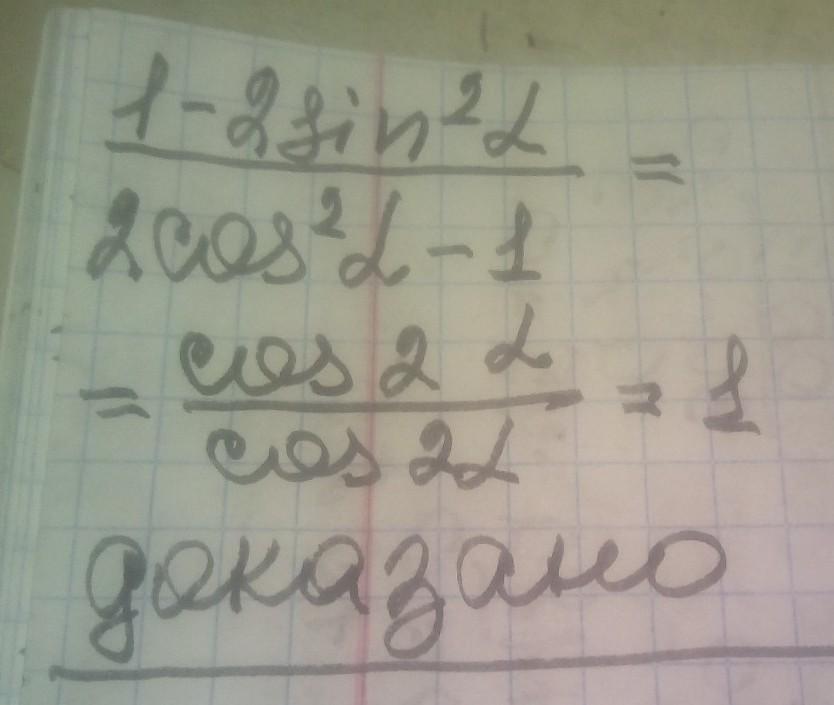 1-2sin²α
=
2cos²α-1
= cos 2 α = 1
cos 2α
доказано